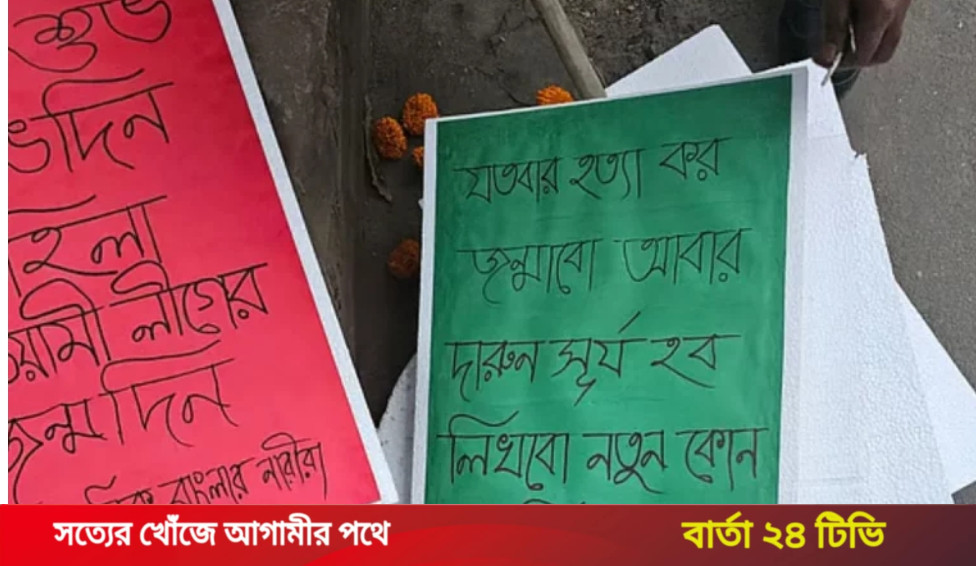 শুভ
দিন
লীগের
জন্মদিন
বাংলার নারীরা
যতবার হত্যা কর
জন্মাবো আবার
দারুন সূর্য হব
লিখবো নতুন কোন
সত্যের খোঁজে আগামীর পথে
বার্তা ২৪ টিভি